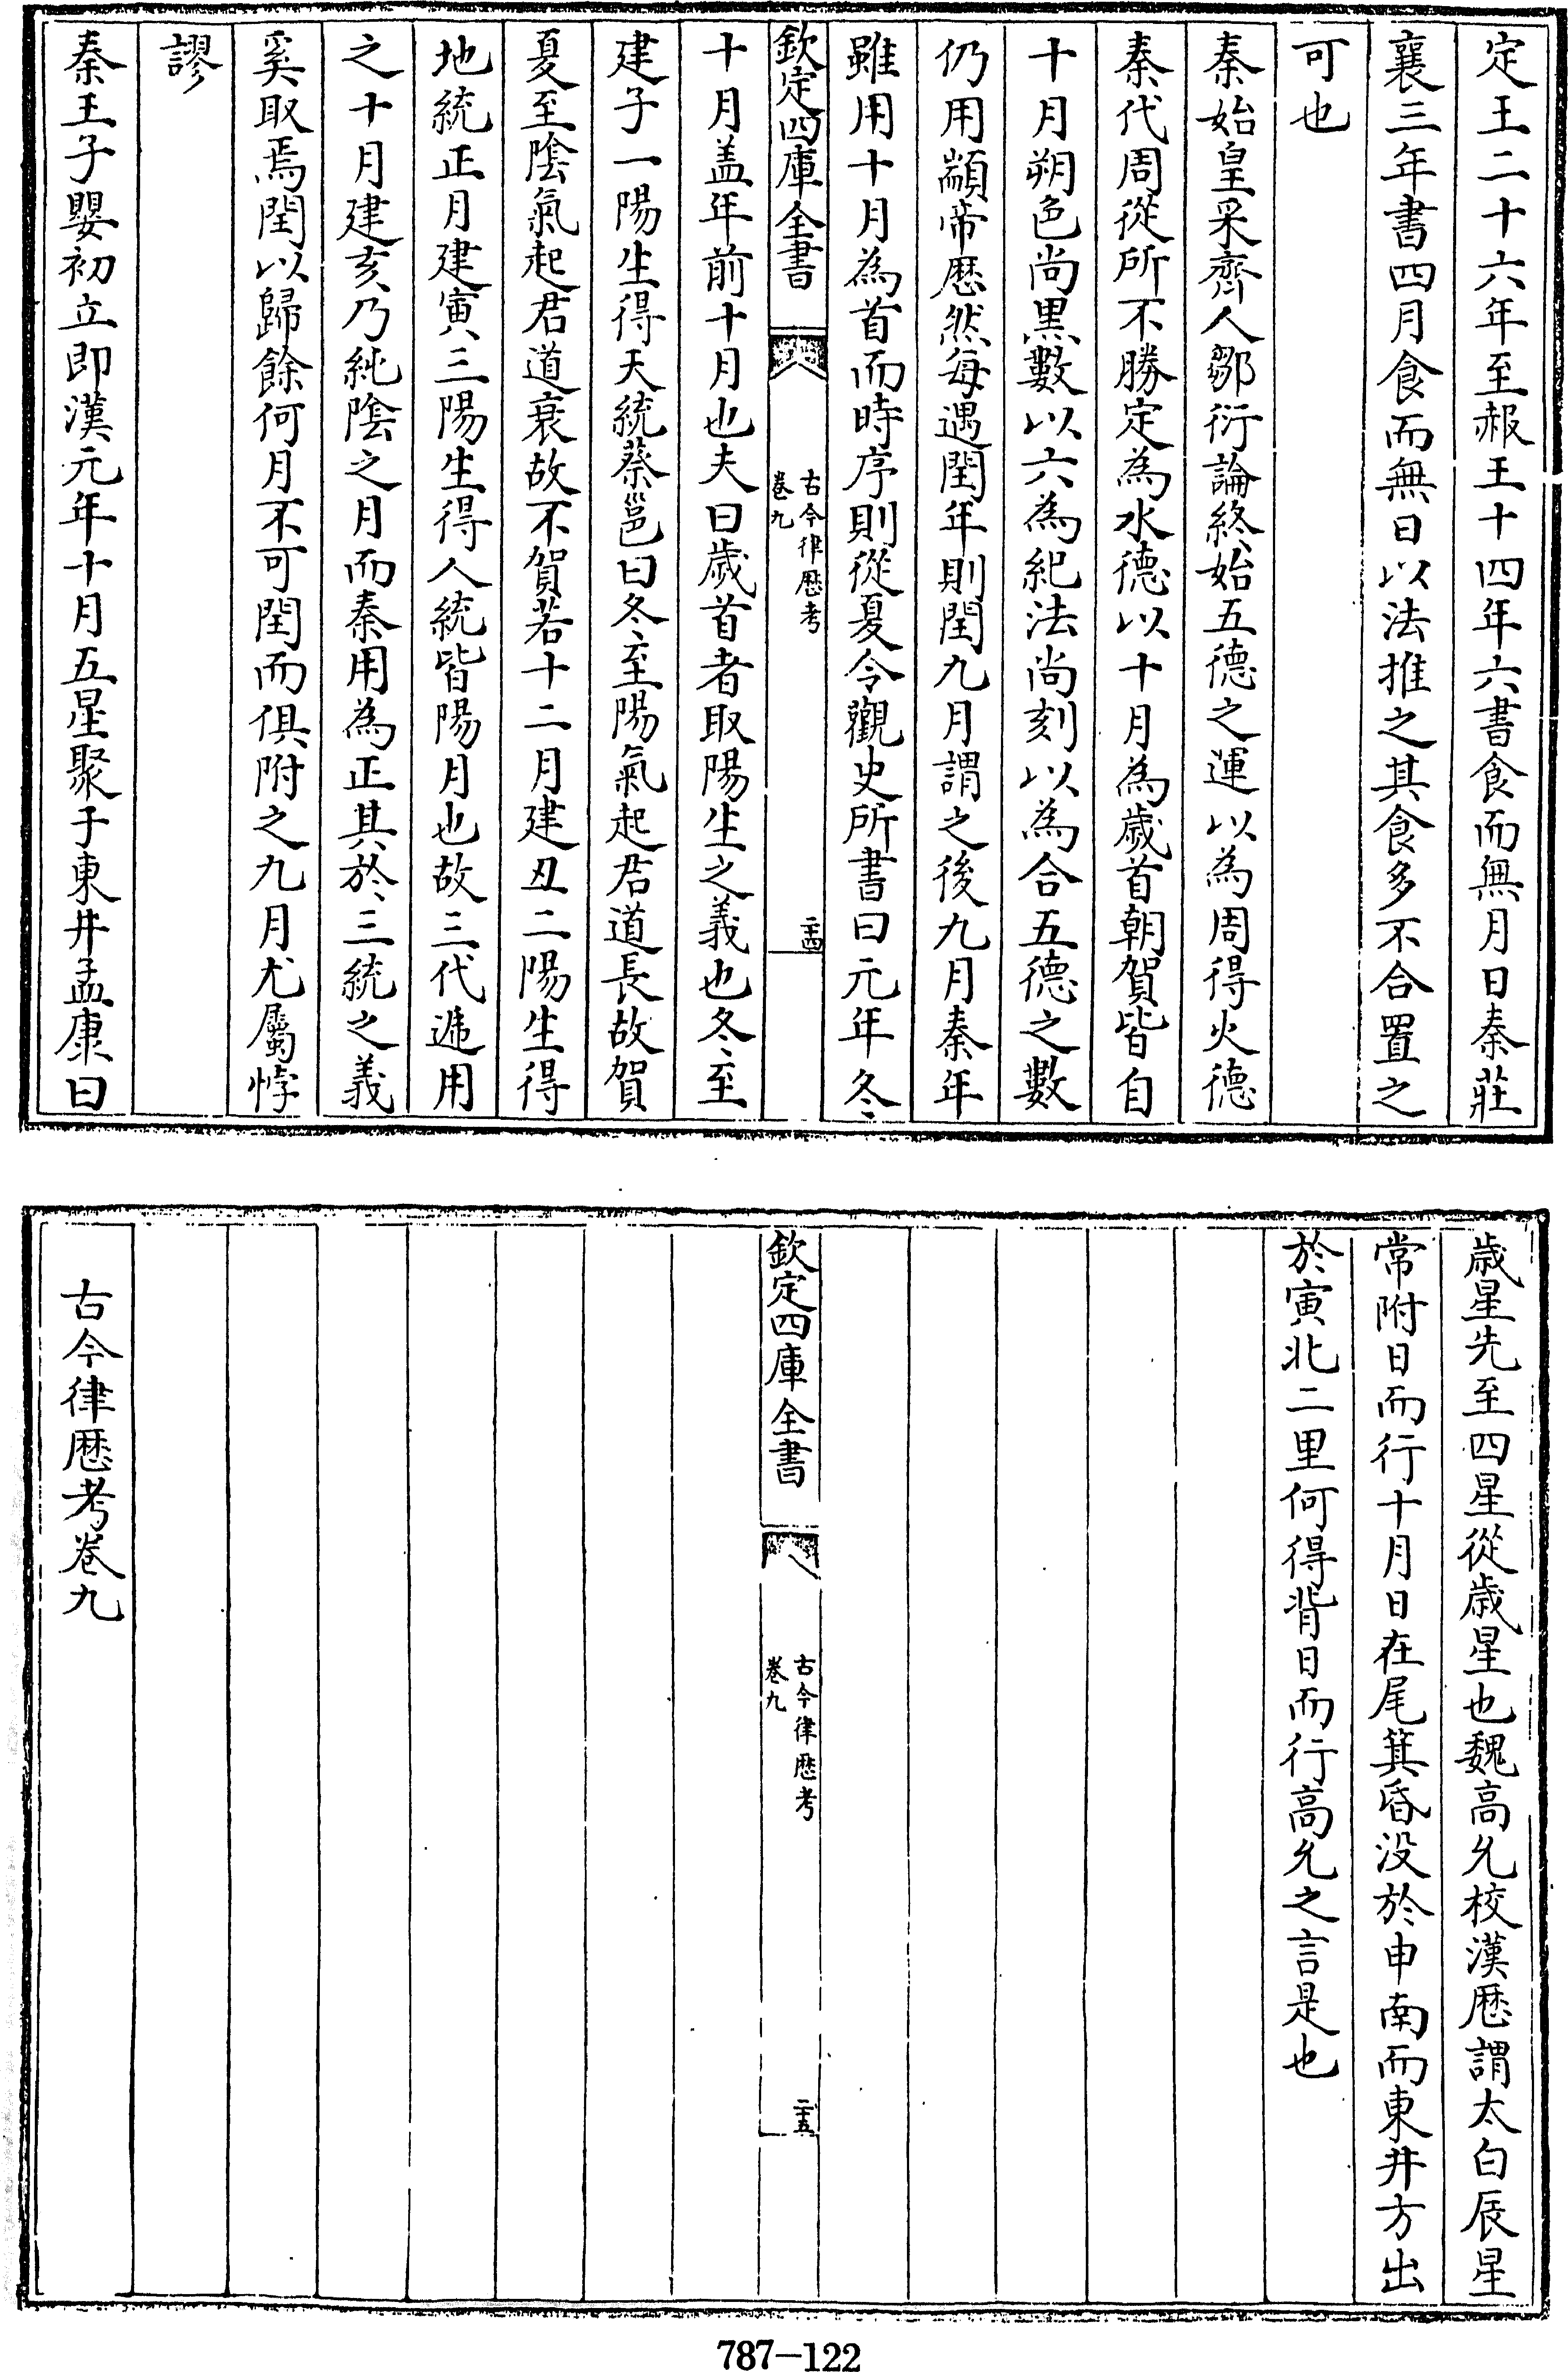 定王二十六年至赧王十四年六書食而無月日秦莊
襄三年書四月食而無日以法推之其食多不合置之
可也
秦始皇采齊人鄒衍論終始五德之運以為周得火德
秦代周從所不勝定為水德以十月為歲首朝賀皆自
十月朔色尚黑數以六為紀法尚刻以為合五德之數
仍用顓帝厯然每遇閏年則閏九月謂之後九月秦年
雖用十月為首而時序則從夏令觀史所書曰元年冬
欽定四庫全書
古今律厯考
卷九
二十四
十月盖年前十月也夫曰歲首者取陽生之義也冬至
建子一陽生得天統蔡邕曰冬至陽氣起君道長故賀
夏至陰氣起君道衰故不賀若十二月建丑二陽生得
地統正月建寅三陽生得人統皆陽月也故三代遞用
之十月建亥乃純陰之月而秦用為正其於三統之義
奚取焉閏以歸餘何月不可閏而俱附之九月尤屬悖
謬
秦王子嬰初立即漢元年十月五星聚于東井孟康曰
歲星先至四星從歲星也魏高允校漢厯謂太白辰星
常附日而行十月日在尾箕昏没於申南而東井方出
於寅北二里何得背日而行高允之言是也
欽定四庫全書
古今律厯考
卷九
二十五
古今律厯考卷九
787-122